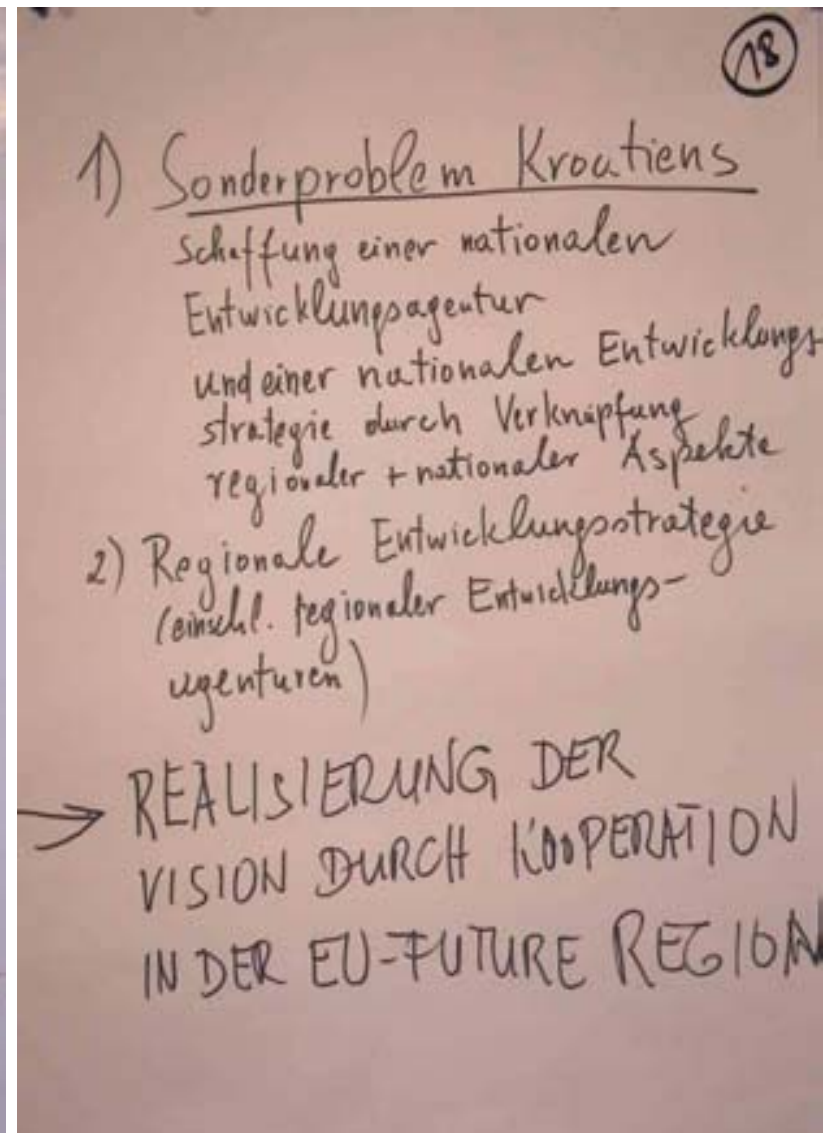 18
1) Sonderproblem Kroatiens
Schaffung einer nationalen
Entwicklungsagentur
und einer nationalen Entwicklungs-
strategie durch Verknüpfung
regionaler + nationaler Aspekte
2) Regionale Entwicklungsstrategie
(einschl. regionaler Entwicklungs-
agenturen)
→ REALISIERUNG DER
VISION DURCH KOOPERATION
IN DER EU-FUTURE REGION